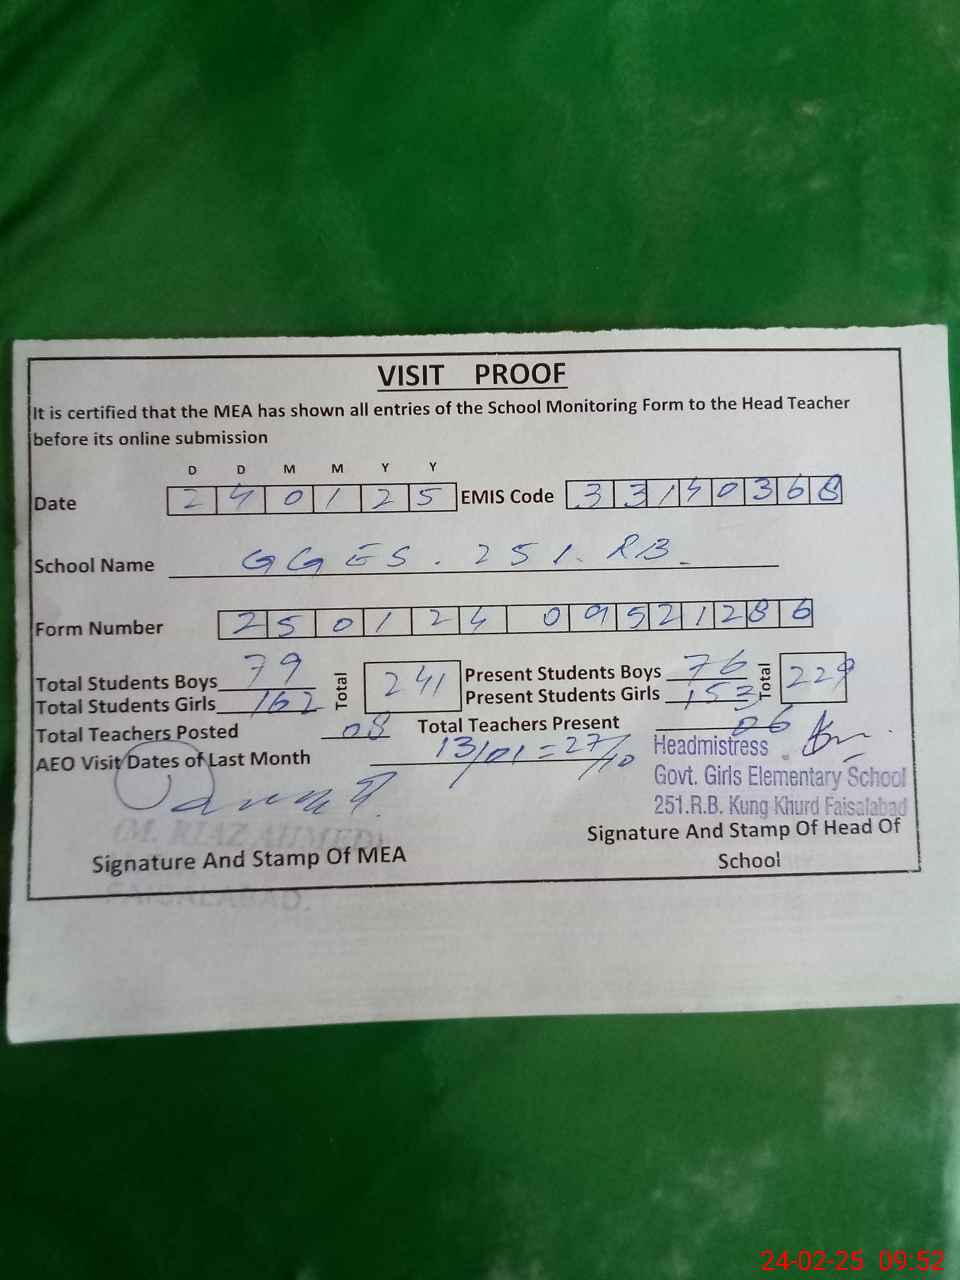 VISIT PROOF
It is certified that the MEA has shown all entries of the School Monitoring Form to the Head Teacher
before its online submission
D D M M Y Y
Date 2 4 0 1 2 5 EMIS Code 3 3 1 4 0 3 6 8
School Name GGES. 251. RB
Form Number 2 5 0 1 2 4 0 9 5 2 1 2 8 6
Total Students Boys 79 Total 241 Present Students Boys 76 Total 229
Total Students Girls 162 Present Students Girls 153
Total Teachers Posted 08 Total Teachers Present 06
AEO Visit Dates of Last Month 13/01 = 27/10
Headmistress
Govt. Girls Elementary School
251.R.B. Kung Khurd Faisalabad
(M. RIAZ AHMED)
Signature And Stamp Of MEA
Signature And Stamp Of Head Of
School
FAISALABAD.
24-02-25 09:52